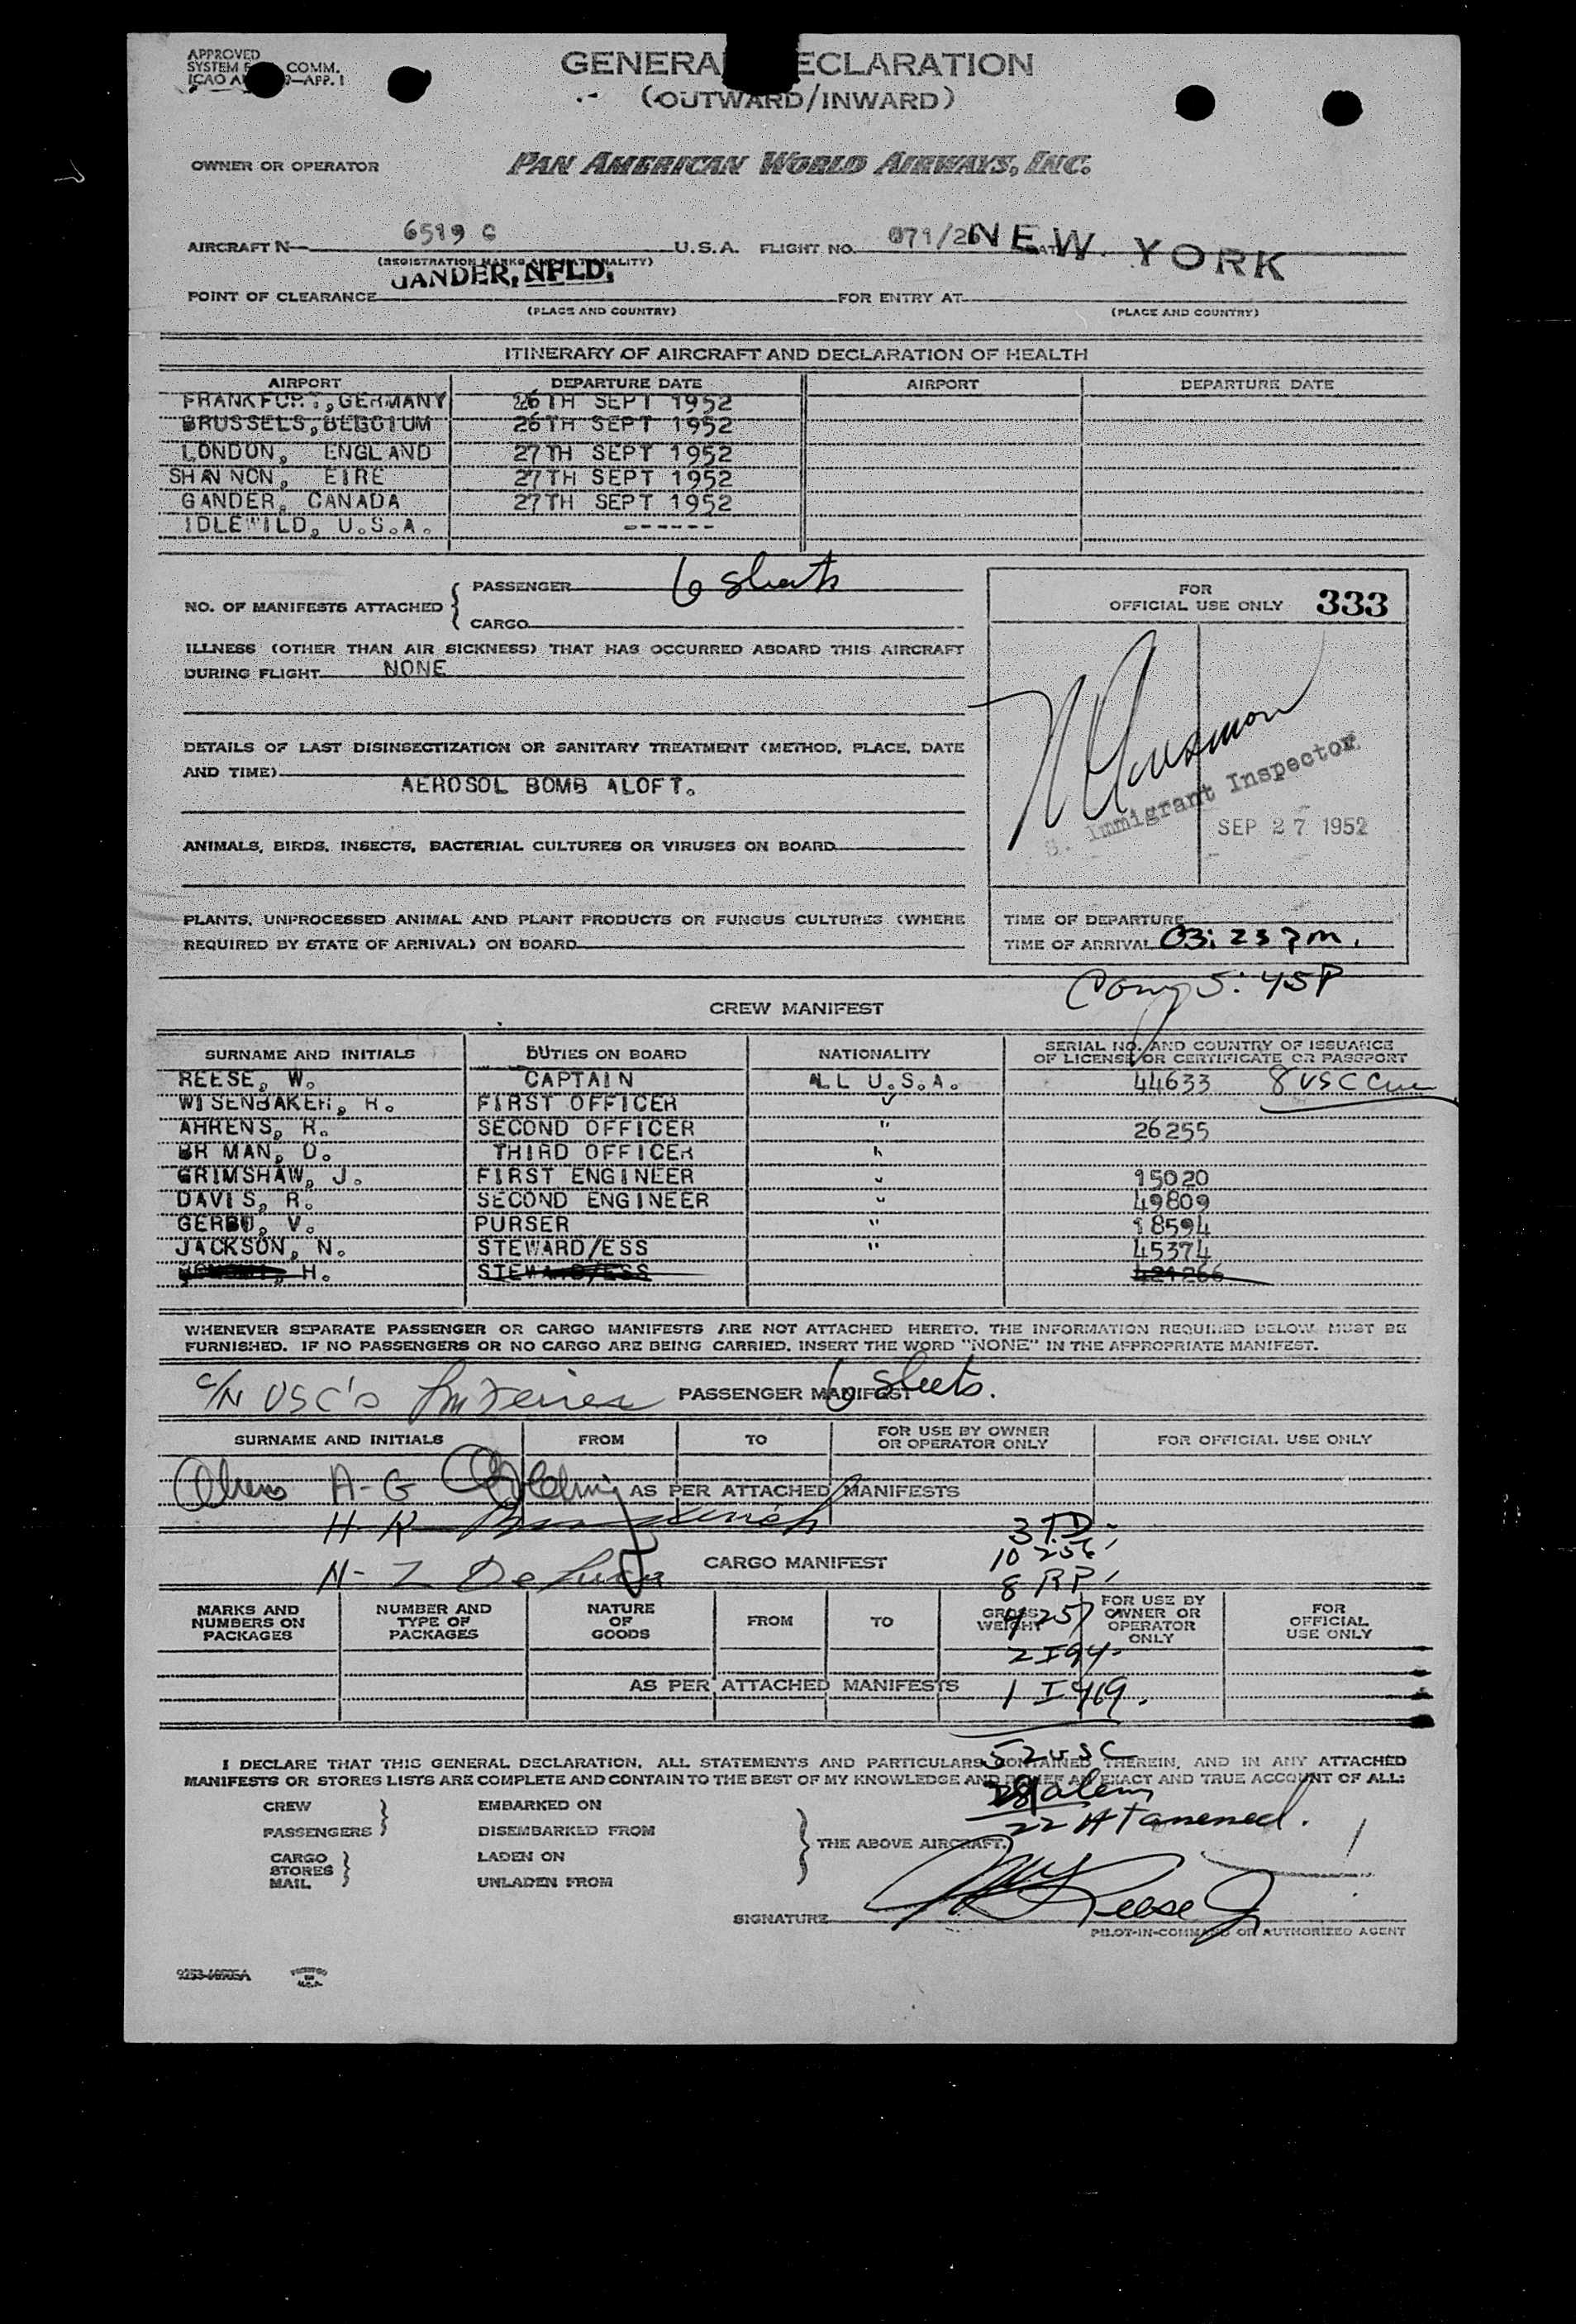 APPROVED
SYSTEM COMM.
ICAO —APP. 1
GENERA ECLARATION
(OUTWARD/INWARD)
OWNER OR OPERATOR PAN AMERICAN WORLD AIRWAYS, INC.
AIRCRAFT N— 6519 C U.S.A. FLIGHT NO. 071/26 NEW YORK
(REGISTRATION MARKS AND NATIONALITY)
GANDER, NFLD.
POINT OF CLEARANCE FOR ENTRY AT
(PLACE AND COUNTRY) (PLACE AND COUNTRY)
ITINERARY OF AIRCRAFT AND DECLARATION OF HEALTH
AIRPORT DEPARTURE DATE AIRPORT DEPARTURE DATE
FRANKFURT, GERMANY 26TH SEPT 1952
BRUSSELS, BEGGIUM 26TH SEPT 1952
LONDON, ENGLAND 27TH SEPT 1952
SHANNON, EIRE 27TH SEPT 1952
GANDER, CANADA 27TH SEPT 1952
IDLEWILD, U.S.A. ------
NO. OF MANIFESTS ATTACHED { PASSENGER 6 sheets
CARGO
FOR
OFFICIAL USE ONLY 333
ILLNESS (OTHER THAN AIR SICKNESS) THAT HAS OCCURRED ABOARD THIS AIRCRAFT
DURING FLIGHT NONE
DETAILS OF LAST DISINSECTIZATION OR SANITARY TREATMENT (METHOD, PLACE, DATE
AND TIME)
AEROSOL BOMB ALOFT.
S. Immigrant Inspector
SEP 27 1952
ANIMALS, BIRDS, INSECTS, BACTERIAL CULTURES OR VIRUSES ON BOARD
PLANTS, UNPROCESSED ANIMAL AND PLANT PRODUCTS OR FUNGUS CULTURES (WHERE
REQUIRED BY STATE OF ARRIVAL) ON BOARD
TIME OF DEPARTURE
TIME OF ARRIVAL 03:23 pm.
5:45P
CREW MANIFEST
SURNAME AND INITIALS DUTIES ON BOARD NATIONALITY SERIAL NO. AND COUNTRY OF ISSUANCE
OF LICENSE OR CERTIFICATE OR PASSPORT
REESE, W. CAPTAIN ALL U.S.A. 44633 8 USC Crew
WISENBAKER, H. FIRST OFFICER "
AHRENS, R. SECOND OFFICER " 26255
BR MAN, D. THIRD OFFICER "
GRIMSHAW, J. FIRST ENGINEER " 15020
DAVIS, R. SECOND ENGINEER " 49809
GERBU, V. PURSER " 18594
JACKSON, N. STEWARD/ESS " 45374
H. STEWARD/ESS 421266
WHENEVER SEPARATE PASSENGER OR CARGO MANIFESTS ARE NOT ATTACHED HERETO, THE INFORMATION REQUIRED BELOW MUST BE
FURNISHED. IF NO PASSENGERS OR NO CARGO ARE BEING CARRIED, INSERT THE WORD "NONE" IN THE APPROPRIATE MANIFEST.
C/N USC's PASSENGER MANIFEST 6 sheets.
SURNAME AND INITIALS FROM TO FOR USE BY OWNER
OR OPERATOR ONLY FOR OFFICIAL USE ONLY
Aliens A-G
AS PER ATTACHED MANIFESTS
H-R
3 TD
N-Z De Luca CARGO MANIFEST
10 256
8 RP
MARKS AND
NUMBERS ON
PACKAGES NUMBER AND
TYPE OF
PACKAGES NATURE
OF
GOODS FROM TO GROSS
WEIGHT FOR USE BY
OWNER OR
OPERATOR
ONLY FOR
OFFICIAL
USE ONLY
4 257
2 I94
AS PER ATTACHED MANIFESTS
1 I 419.
52 USC
28 aliens
22
I DECLARE THAT THIS GENERAL DECLARATION, ALL STATEMENTS AND PARTICULARS CONTAINED THEREIN, AND IN ANY ATTACHED
MANIFESTS OR STORES LISTS ARE COMPLETE AND CONTAIN TO THE BEST OF MY KNOWLEDGE AND BELIEF AN EXACT AND TRUE ACCOUNT OF ALL:
CREW EMBARKED ON
PASSENGERS DISEMBARKED FROM
THE ABOVE AIRCRAFT.
CARGO LADEN ON
STORES
MAIL UNLADEN FROM
SIGNATURE W Reese Jr
PILOT-IN-COMMAND OR AUTHORIZED AGENT
PRINTED
IN
U.S.A.